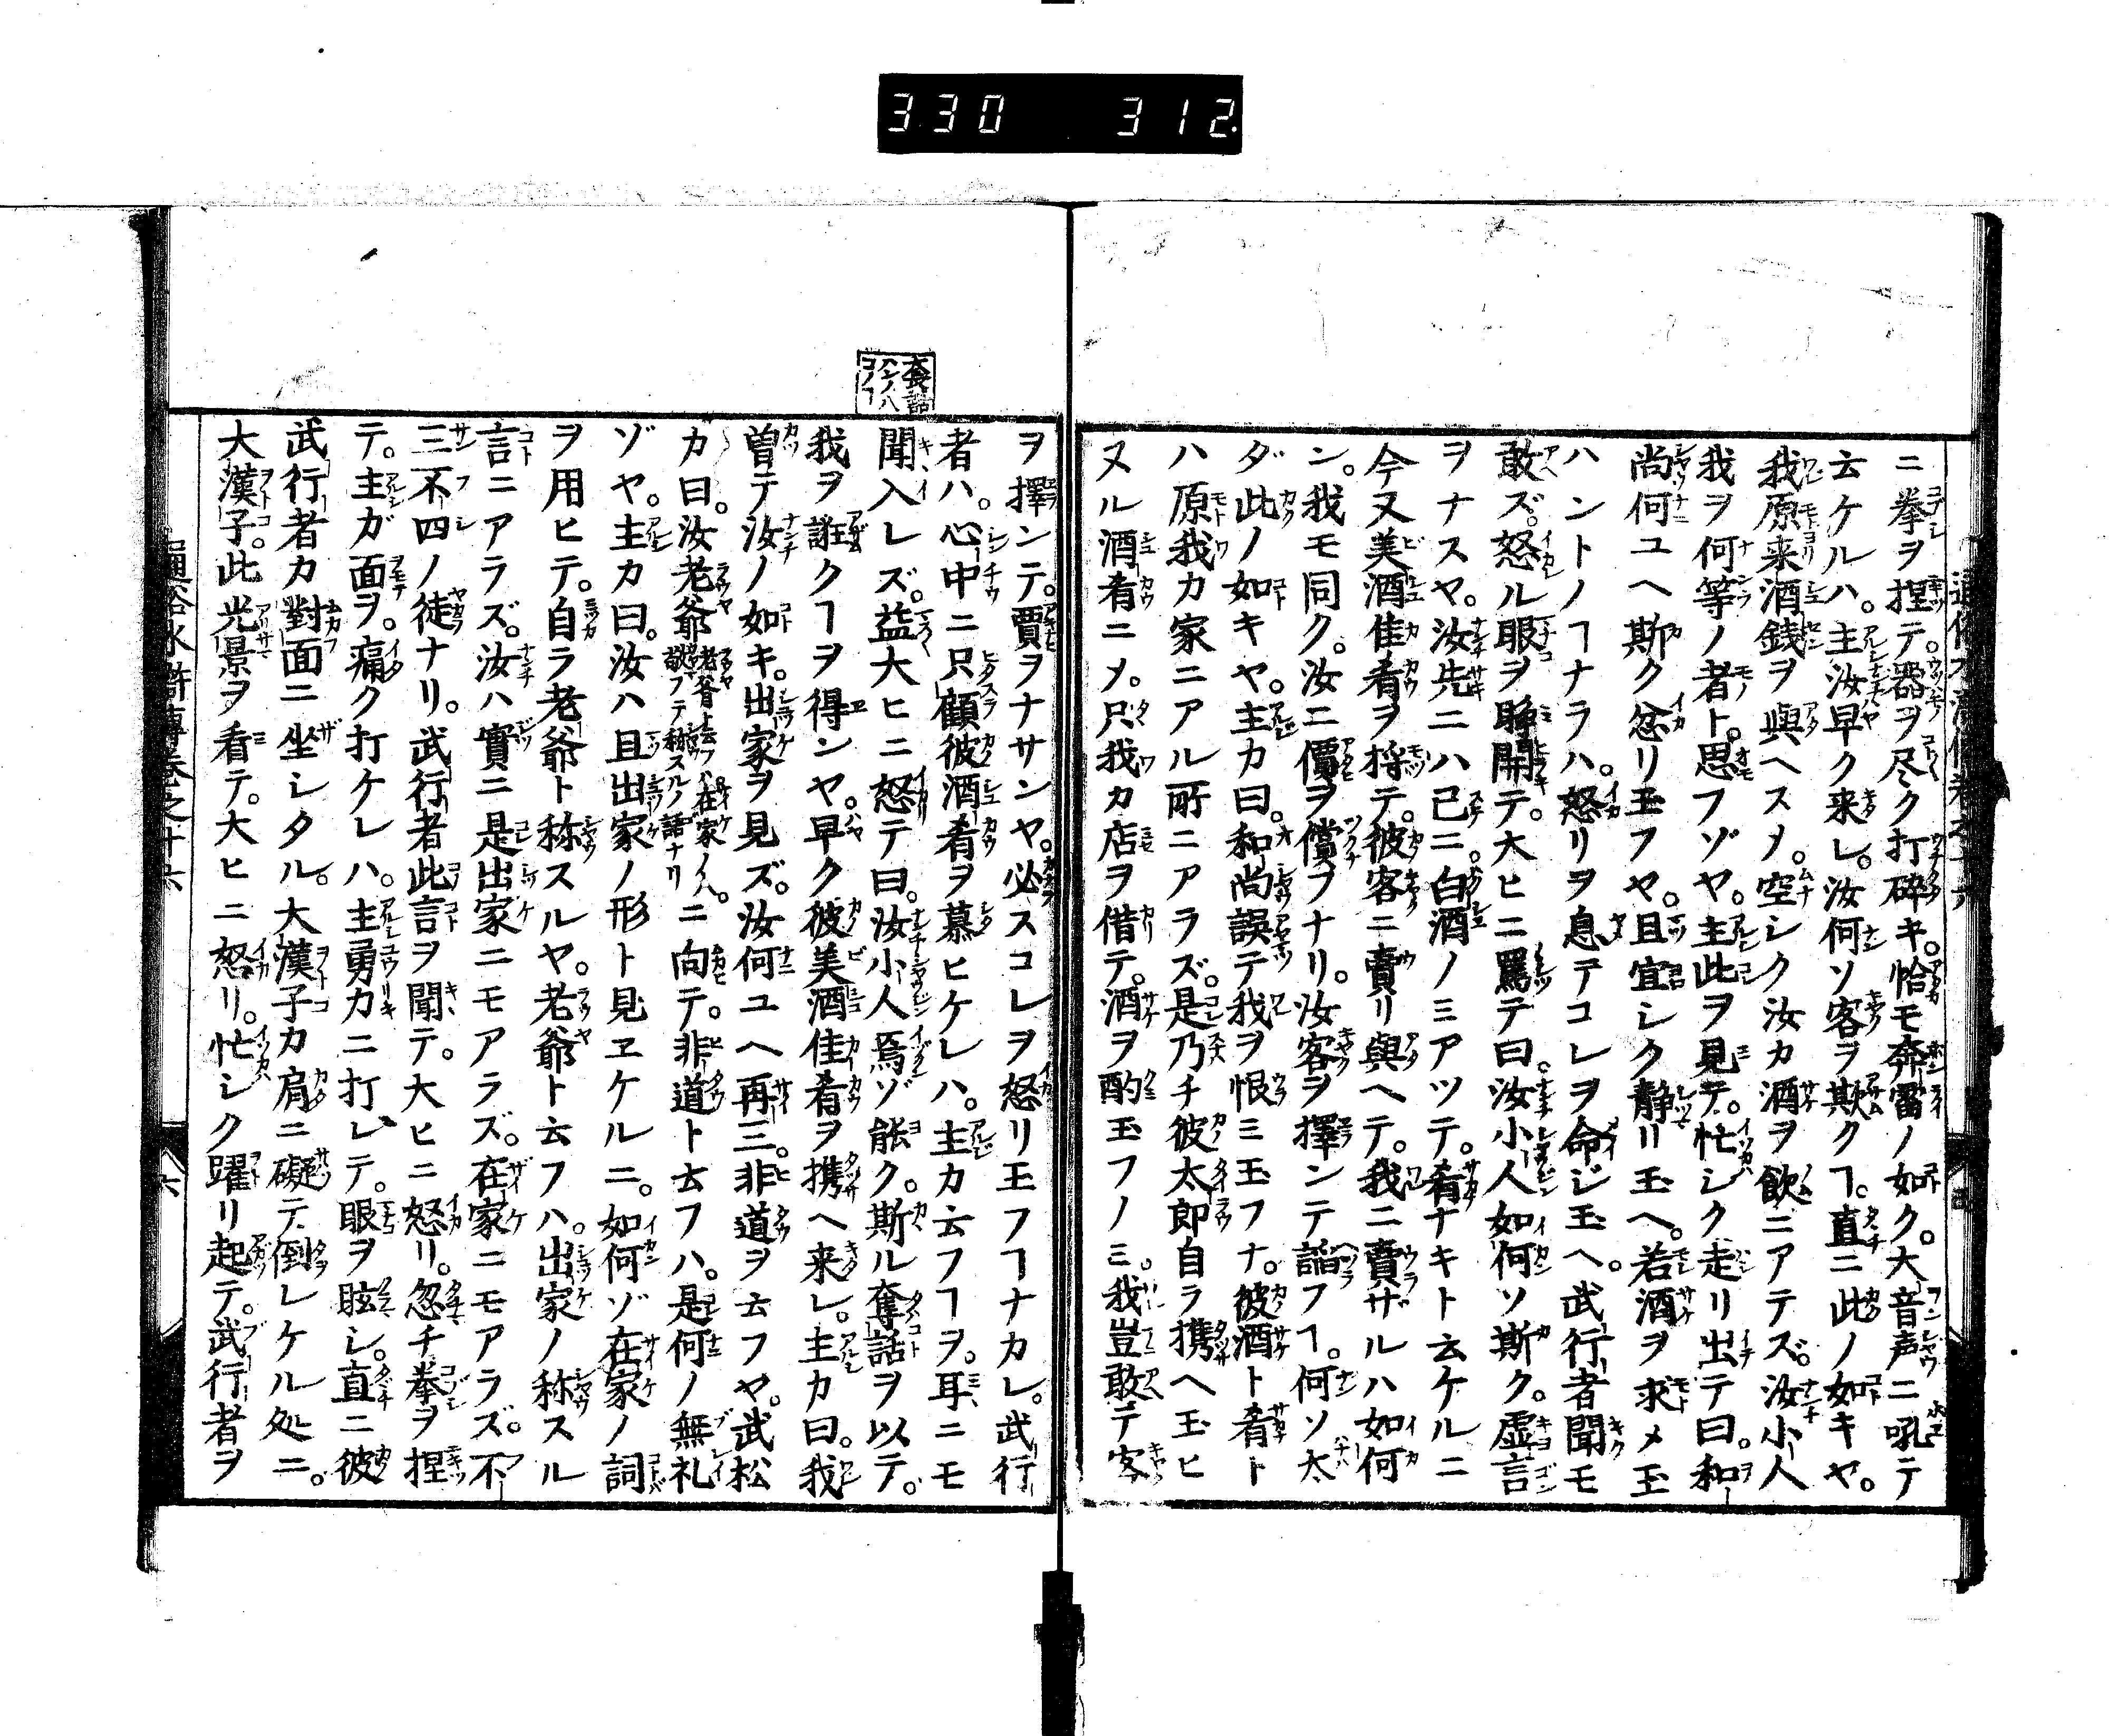 330 312.
ニ拳ヲ捏テ。器ヲ尽ク打碎キ。恰モ奔雷ノ如ク。大音声ニ吼テ
云ケルハ。主汝早ク来レ。汝何ソ客ヲ欺クヿ。直ニ此ノ如キヤ。
我原来酒銭ヲ與ヘスメ。空シク汝カ酒ヲ飲ニアテズ。汝小人
我ヲ何等ノ者ト。思フゾヤ。主此ヲ見テ。忙シク走リ出テ曰。和
尚何ユヘ斯ク忿リ玉フヤ。且宜シク静リ玉ヘ。若酒ヲ求メ玉
ハントノヿナラハ。怒リヲ息テコレヲ命ジ玉ヘ。武行者聞モ
敢ズ。怒ル眼ヲ睁開テ。大ヒニ罵テ曰。汝小人如何ソ斯ク。虚言
ヲナスヤ。汝先ニハ已ニ。白酒ノミアツテ。肴ナキト云ケルニ
今又美酒佳肴ヲ将テ。彼客ニ賣リ與ヘテ。我ニ賣ザルハ如何
ン。我モ同ク。汝ニ價ヲ償フナリ。汝客ヲ擇ンテ謟フヿ。何ソ太
ダ此ノ如キヤ。主カ曰。和尚誤テ我ヲ恨ミ玉フナ。彼酒ト肴ト
ハ原我カ家ニアル所ニアラズ。是乃チ彼太郎自ラ携ヘ玉ヒ
ヌル酒肴ニメ。只我カ店ヲ借テ。酒ヲ酌玉フノミ。我豈敢テ客
ヲ擇ンテ。賈ヲナサンヤ。必スコレヲ怒リ玉フヿナカレ。武行
者ハ。心中ニ只顧彼酒肴ヲ慕ヒケレハ。主カ云フヿヲ。耳ニモ
聞入レズ。益大ヒニ怒テ曰。汝小人焉ゾ能ク。斯ル奪話ヲ以テ。
我ヲ誑クヿヲ得ンヤ。早ク彼美酒佳肴ヲ携ヘ来レ。主カ曰。我
曽テ汝ノ如キ。出家ヲ見ズ。汝何ユヘ再三。非道ヲ云フヤ。武松
カ曰。汝老爺老爺ト云フハ在家ノ人ヘ。敬フテ称スルノ話ナリニ向テ。非道ト云フハ。是何ノ無礼
ゾヤ。主カ曰。汝ハ且出家ノ形ト見ヱケルニ。如何ゾ在家ノ詞
ヲ用ヒテ。自ラ老爺ト称スルヤ。老爺ト云フハ。出家ノ称スル
言ニアラズ。汝ハ實ニ是出家ニモアラズ。在家ニモアラズ。不
三不四ノ徒ナリ。武行者此言ヲ聞テ。大ヒニ怒リ。忽チ拳ヲ捏
テ。主ガ面ヲ。痛ク打ケレハ。主勇力ニ打レテ。眼ヲ眩シ。直ニ彼
武行者カ對面ニ坐シタル。大漢子カ肩ニ礙テ倒レケル処ニ。
大漢子。此光景ヲ看テ。大ヒニ怒リ。忙シク躍リ起テ。武行者ヲ
通俗水滸傳巻之十六
六